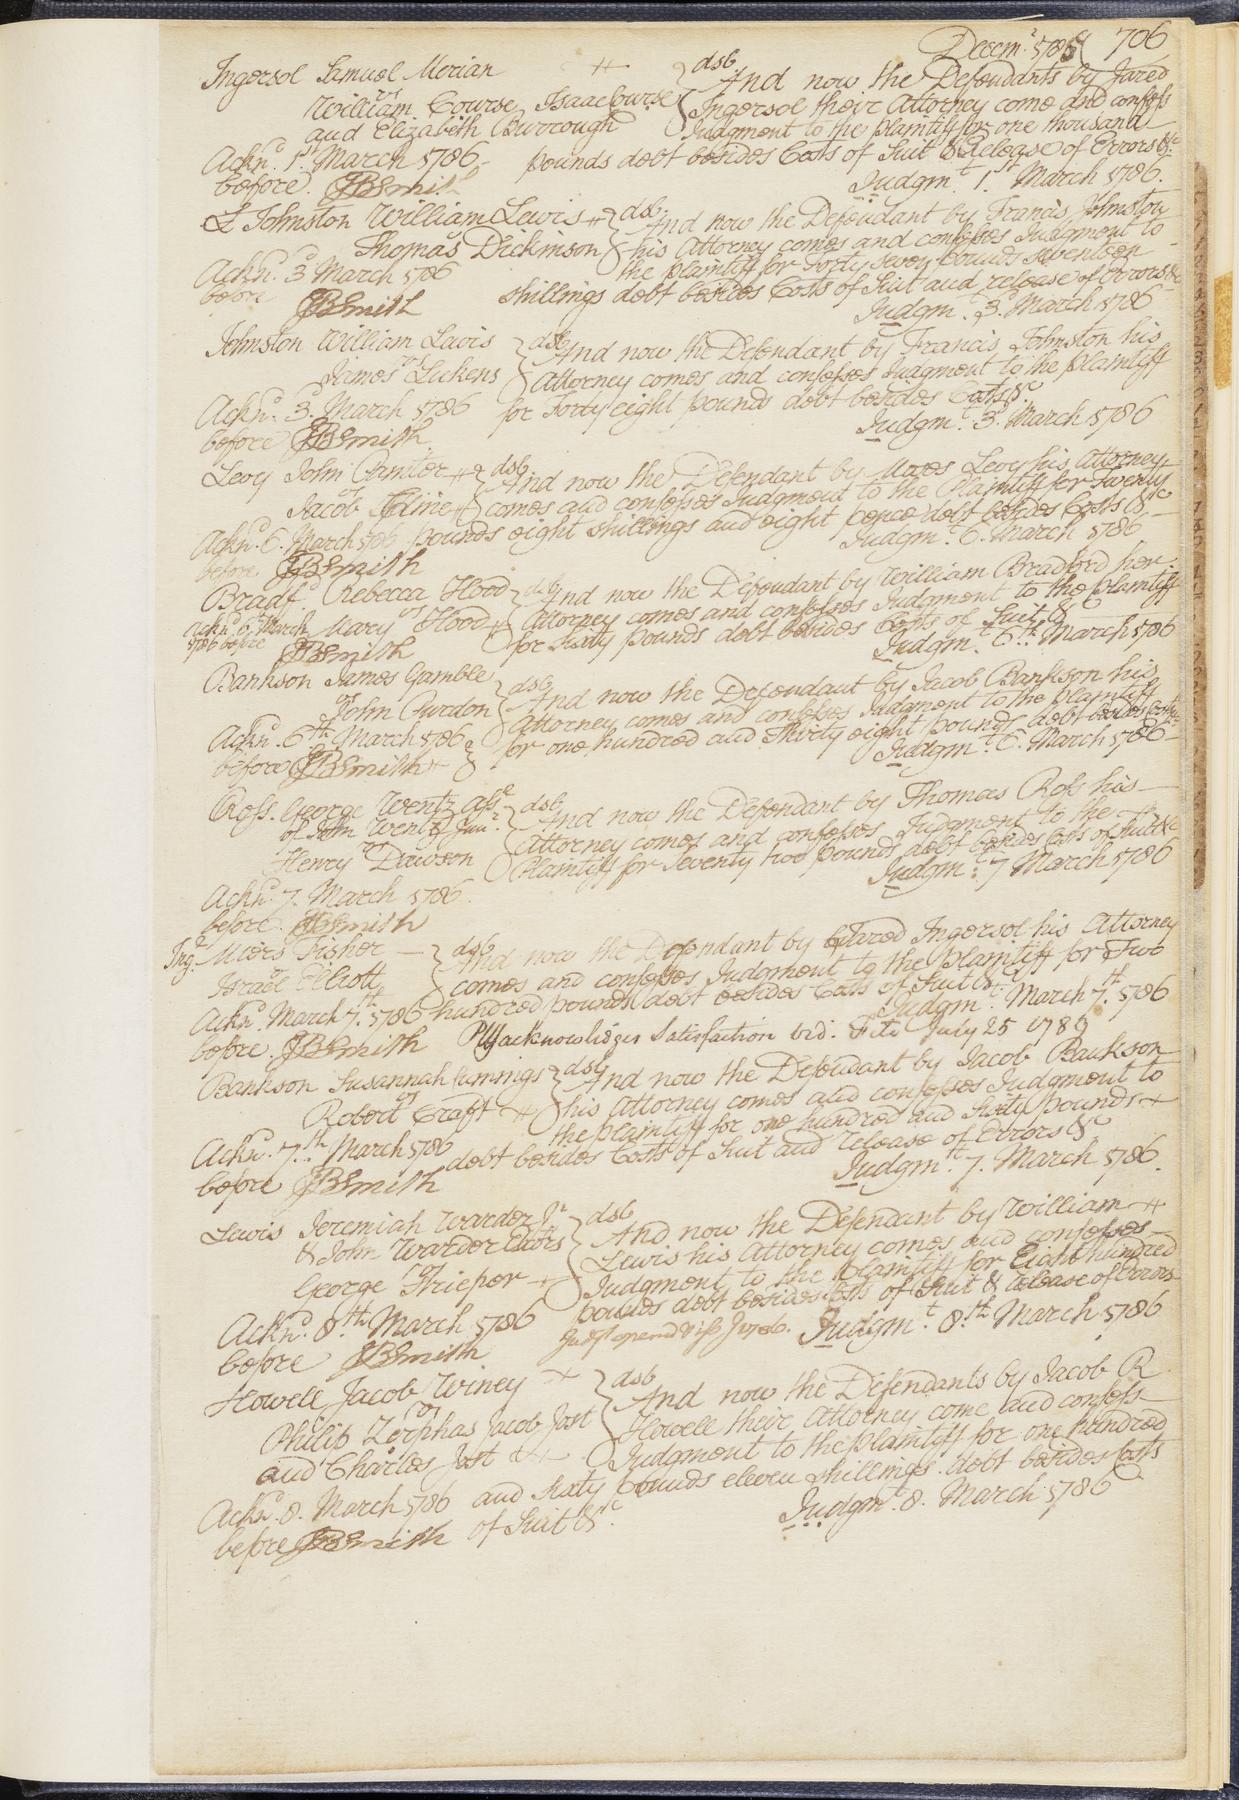 Decemr. 1785 706
Ingersol Samuel Merian dsb
And now the Defendants by Jared
vs
William Course Isaac Course Ingersol their Attorney come and confess
and Elizabeth Burrough Judgment to the plaintiff for one thousand
Acknd. 1st March 1786 pounds debt besides Costs of Suit & Release of Errors &c
before JBSmith Judgmt. 1st March 1786.
Johnston William Lewis dsb
And now the Defendant by Francis Johnston
vs
Thomas Dickinson his Attorney comes and confesses Judgment to
Acknd. 3d March 1786 the plaintiff for Forty seven pounds seventeen
before JBSmith shillings debt besides Costs of Suit and release of Errors &c
Judgmt. 3d March 1786
Johnston William Lewis dsb
And now the Defendant by Francis Johnston his
vs
James Lukens Attorney comes and confesses Judgment to the plaintiff
Acknd. 3d March 1786 for Forty eight pounds debt besides Costs &c
before JBSmith Judgmt. 3d March 1786
Levy John dsb
And now the Defendant by Moses Levy his Attorney
vs
Jacob Cline comes and confesses Judgment to the Plaintiff for Twenty
Acknd. 6. March 1786 pounds eight shillings and eight pence debt besides Costs &c
before JBSmith Judgmt. 6. March 1786
Bradfd. Rebecca Hood dsb
And now the Defendant by William Bradford her
vs
Mary Hood Attorney comes and confesses Judgment to the plaintiff
Acknd. 6th March 1786 before for Sixty pounds debt besides Costs of Suit &c
JBSmith Judgmt. 6th March 1786
Bankson James Gamble dsb
And now the Defendant by Jacob Bankson his
vs
John Purdon Attorney comes and confesses Judgment to the plaintiff
Acknd. 6th March 1786 for one hundred and Thirty eight pounds debt besides Costs &c
before JBSmith Judgmt. 6. March 1786
Ross. George Wentz Asse. dsb
And now the Defendant by Thomas Ross his
of John Wentz Junr. Attorney comes and confesses Judgment to the
vs
Henry Dawson Plaintiff for Seventy two pounds debt besides Costs of Suit &c
Judgmt. 7 March 1786
Acknd. 7. March 1786.
before JBSmith
Ingl. Miers Fisher dsb
And now the Defendant by Jared Ingersol his Attorney
vs
Israel Elliott comes and confesses Judgment to the plaintiff for Two
Acknd. March 7th. 1786 hundred pounds debt besides Costs of Suit &c
Judgmt. March 7th. 1786
before JBSmith Plff acknowledges Satisfaction vid. File July 25 1789
Bankson Susannah Cumings dsb
And now the Defendant by Jacob Bankson
vs
Robert Craft his Attorney comes and confesses Judgment to
the plaintiff for one hundred and Sixty pounds
Acknd. 7th. March 1786 debt besides Costs of Suit and release of Errors &c
before JBSmith Judgmt. 7. March 1786.
Lewis Jeremiah Warder Jr dsb
And now the Defendant by William
& John Warder Exors Lewis his Attorney comes and confesses
vs
George Frieper Judgment to the plaintiff for Eight hundred
pounds debt besides Costs of Suit & release of Errors
Acknd. 8th. March 1786 Judgmt. 8th. March 1786
before JBSmith
Howell Jacob Winey dsb
And now the Defendants by Jacob R
vs
Philip Zerphas Jacob Jost Howell their Attorney come and confess
and Charles Jost Judgment to the plaintiff for one hundred
Acknd. 8. March 1786 and Sixty pounds eleven shillings debt besides Costs
before JBSmith of Suit &c. Judgmt. 8. March 1786